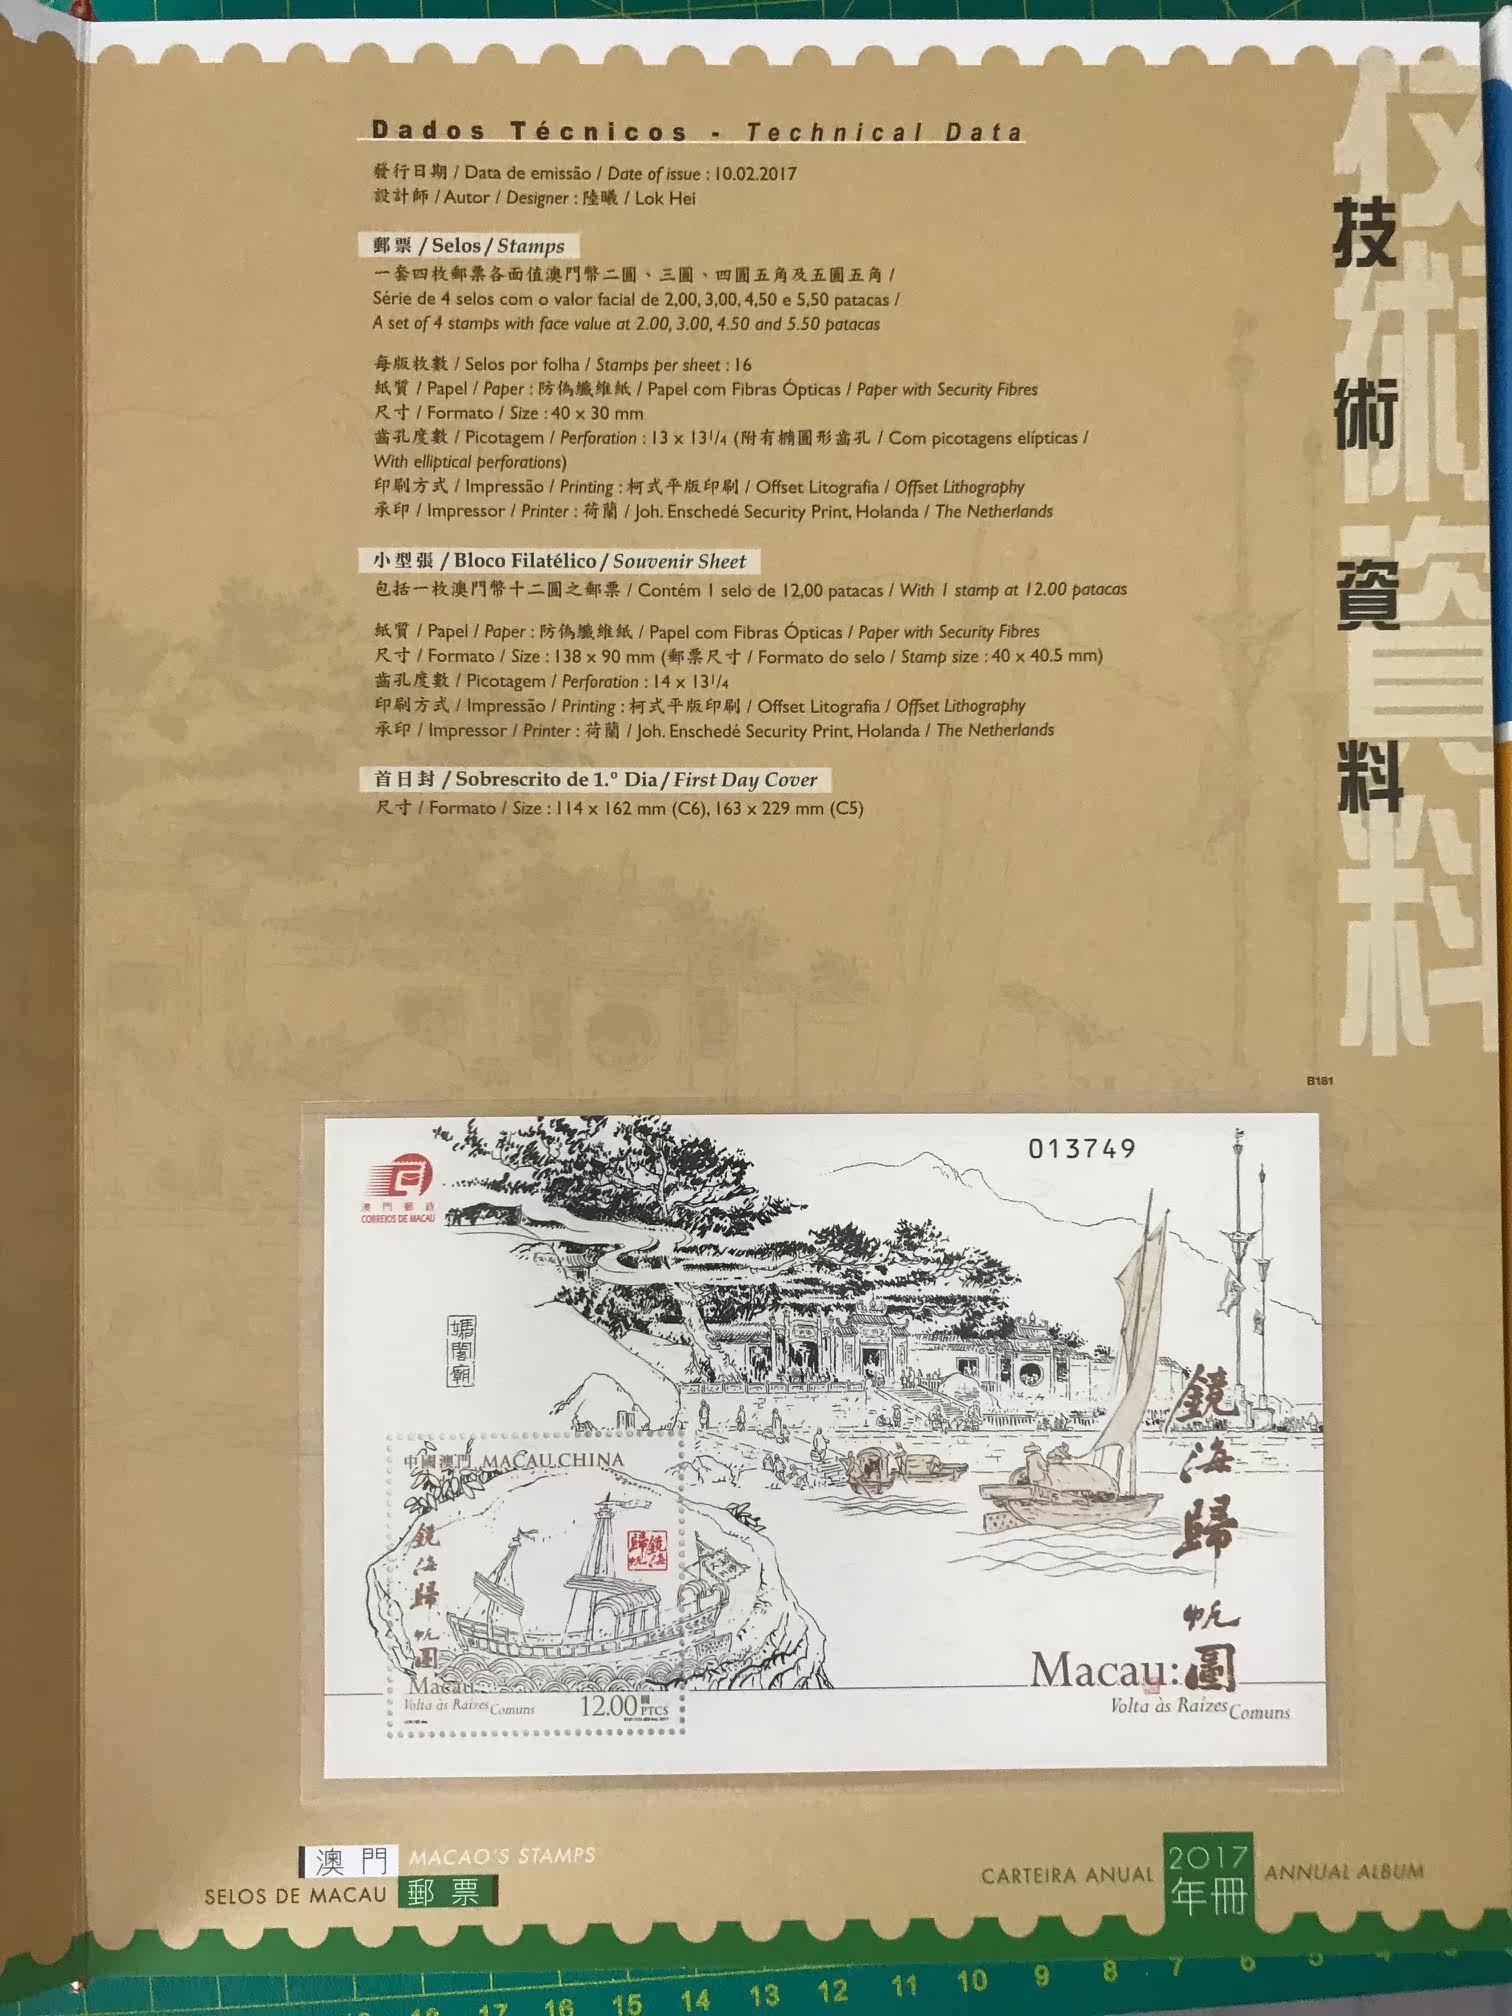 Dados Técnicos - Technical Data
發行日期 / Data de emissão / Date of issue : 10.02.2017
設計師 / Autor / Designer : 陸曦 / Lok Hei
郵票 / Selos / Stamps
一套四枚郵票各面值澳門幣二圓、三圓、四圓五角及五圓五角 /
Série de 4 selos com o valor facial de 2,00, 3,00, 4,50 e 5,50 patacas /
A set of 4 stamps with face value at 2.00, 3.00, 4.50 and 5.50 patacas
每版枚數 / Selos por folha / Stamps per sheet : 16
紙質 / Papel / Paper : 防偽纖維紙 / Papel com Fibras Ópticas / Paper with Security Fibres
尺寸 / Formato / Size : 40 x 30 mm
齒孔度數 / Picotagem / Perforation : 13 x 13¹/₄ (附有橢圓形齒孔 / Com picotagens elípticas /
With elliptical perforations)
印刷方式 / Impressão / Printing : 柯式平版印刷 / Offset Litografia / Offset Lithography
承印 / Impressor / Printer : 荷蘭 / Joh. Enschedé Security Print, Holanda / The Netherlands
小型張 / Bloco Filatélico / Souvenir Sheet
包括一枚澳門幣十二圓之郵票 / Contém 1 selo de 12,00 patacas / With 1 stamp at 12.00 patacas
紙質 / Papel / Paper : 防偽纖維紙 / Papel com Fibras Ópticas / Paper with Security Fibres
尺寸 / Formato / Size : 138 x 90 mm (郵票尺寸 / Formato do selo / Stamp size : 40 x 40.5 mm)
齒孔度數 / Picotagem / Perforation : 14 x 13¹/₄
印刷方式 / Impressão / Printing : 柯式平版印刷 / Offset Litografia / Offset Lithography
承印 / Impressor / Printer : 荷蘭 / Joh. Enschedé Security Print, Holanda / The Netherlands
首日封 / Sobrescrito de 1.º Dia / First Day Cover
尺寸 / Formato / Size : 114 x 162 mm (C6), 163 x 229 mm (C5)
技術資料
技術資料
B181
013749
澳門郵政
CORREIOS DE MACAU
媽閣廟
鏡海歸帆圖
Macau:
Volta às Raízes Comuns
中國澳門 MACAU, CHINA
鏡海歸帆
鏡海歸帆圖
Macau:
Volta às Raízes Comuns
12.00 PTCS
澳門 MACAO'S STAMPS
SELOS DE MACAU 郵票
CARTEIRA ANUAL 2017 年冊 ANNUAL ALBUM
17 16 15 14 13 12 11 10 9 8 7 6 5 4